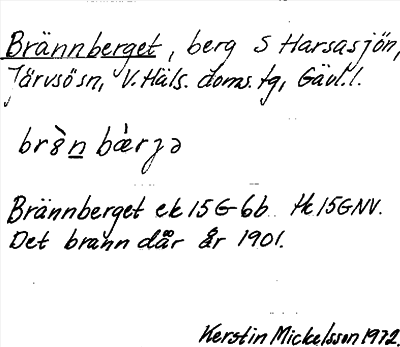 Brännberget, berg S Harsasjön,
Järvsö sn, V. Häls. doms. tg, Gävl. l.
bæ̀rjə
Brännberget ek 15G 6b tk 15GNV.
Det brann där år 1901.
Kerstin Mickelsson 1972.